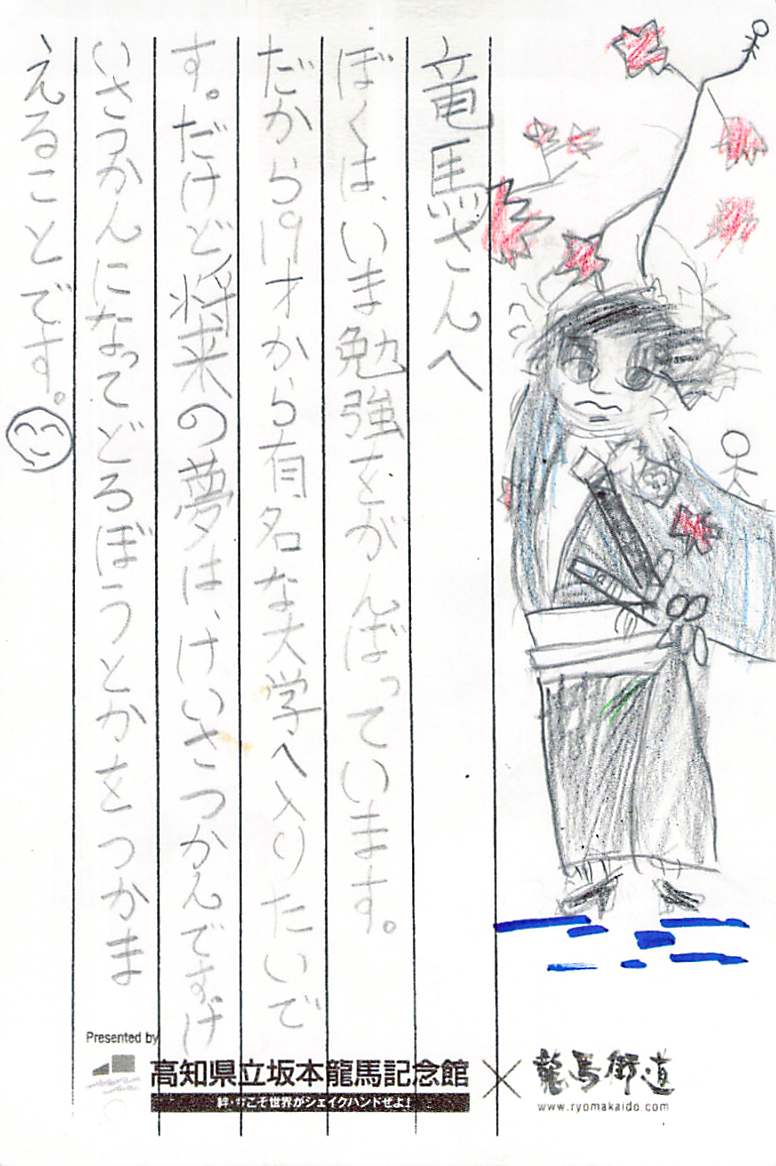 竜馬さんへ
ぼくは、いま勉強をがんばっています。
だから19才から有名な大学へ入りたいで
す。だけど将来の夢は、けいさつかんです。け
いさつかんになってどろぼうとかをつかま
えることです。
Presented by
高知県立坂本龍馬記念館
絆・今こそ世界がシェイクハンドぜよ!
× 龍馬街道
www.ryomakaido.com